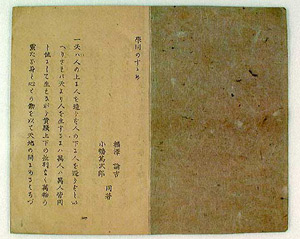 學問のすゝめ
福澤諭吉
小幡篤次郎 同著
一天ハ人の上ニ人を造らす人の下ニ人を造らすとい
へりされハ天より人を生するニハ萬人ハ萬人皆同
し位にして生れなから貴賤上下の差別なく萬物の
靈たる身と心との働を以て天地の間にあるよろづ